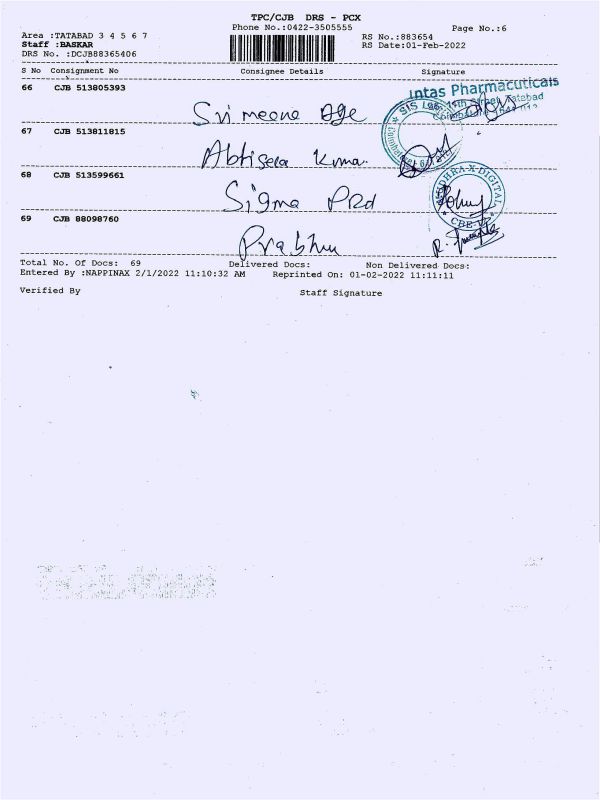 TPC/CJB DRS - PCX
Phone No.:0422-3505555
Page No.:6
Area :TATABAD 3 4 5 6 7
RS No.:883654
Staff :BASKAR
RS Date:01-Feb-2022
DRS No. :DCJB88365406
S No Consignment No Consignee Details Signature
66 CJB 513805393
Intas Pharmacuticals
Sri meena
67 CJB 513811815
Abhisea Kuma
68 CJB 513599661
Sigma Prd
69 CJB 88098760
Prabhu
Total No. Of Docs: 69 Delivered Docs: Non Delivered Docs:
Entered By :NAPPINAX 2/1/2022 11:10:32 AM Reprinted On: 01-02-2022 11:11:11
Verified By Staff Signature